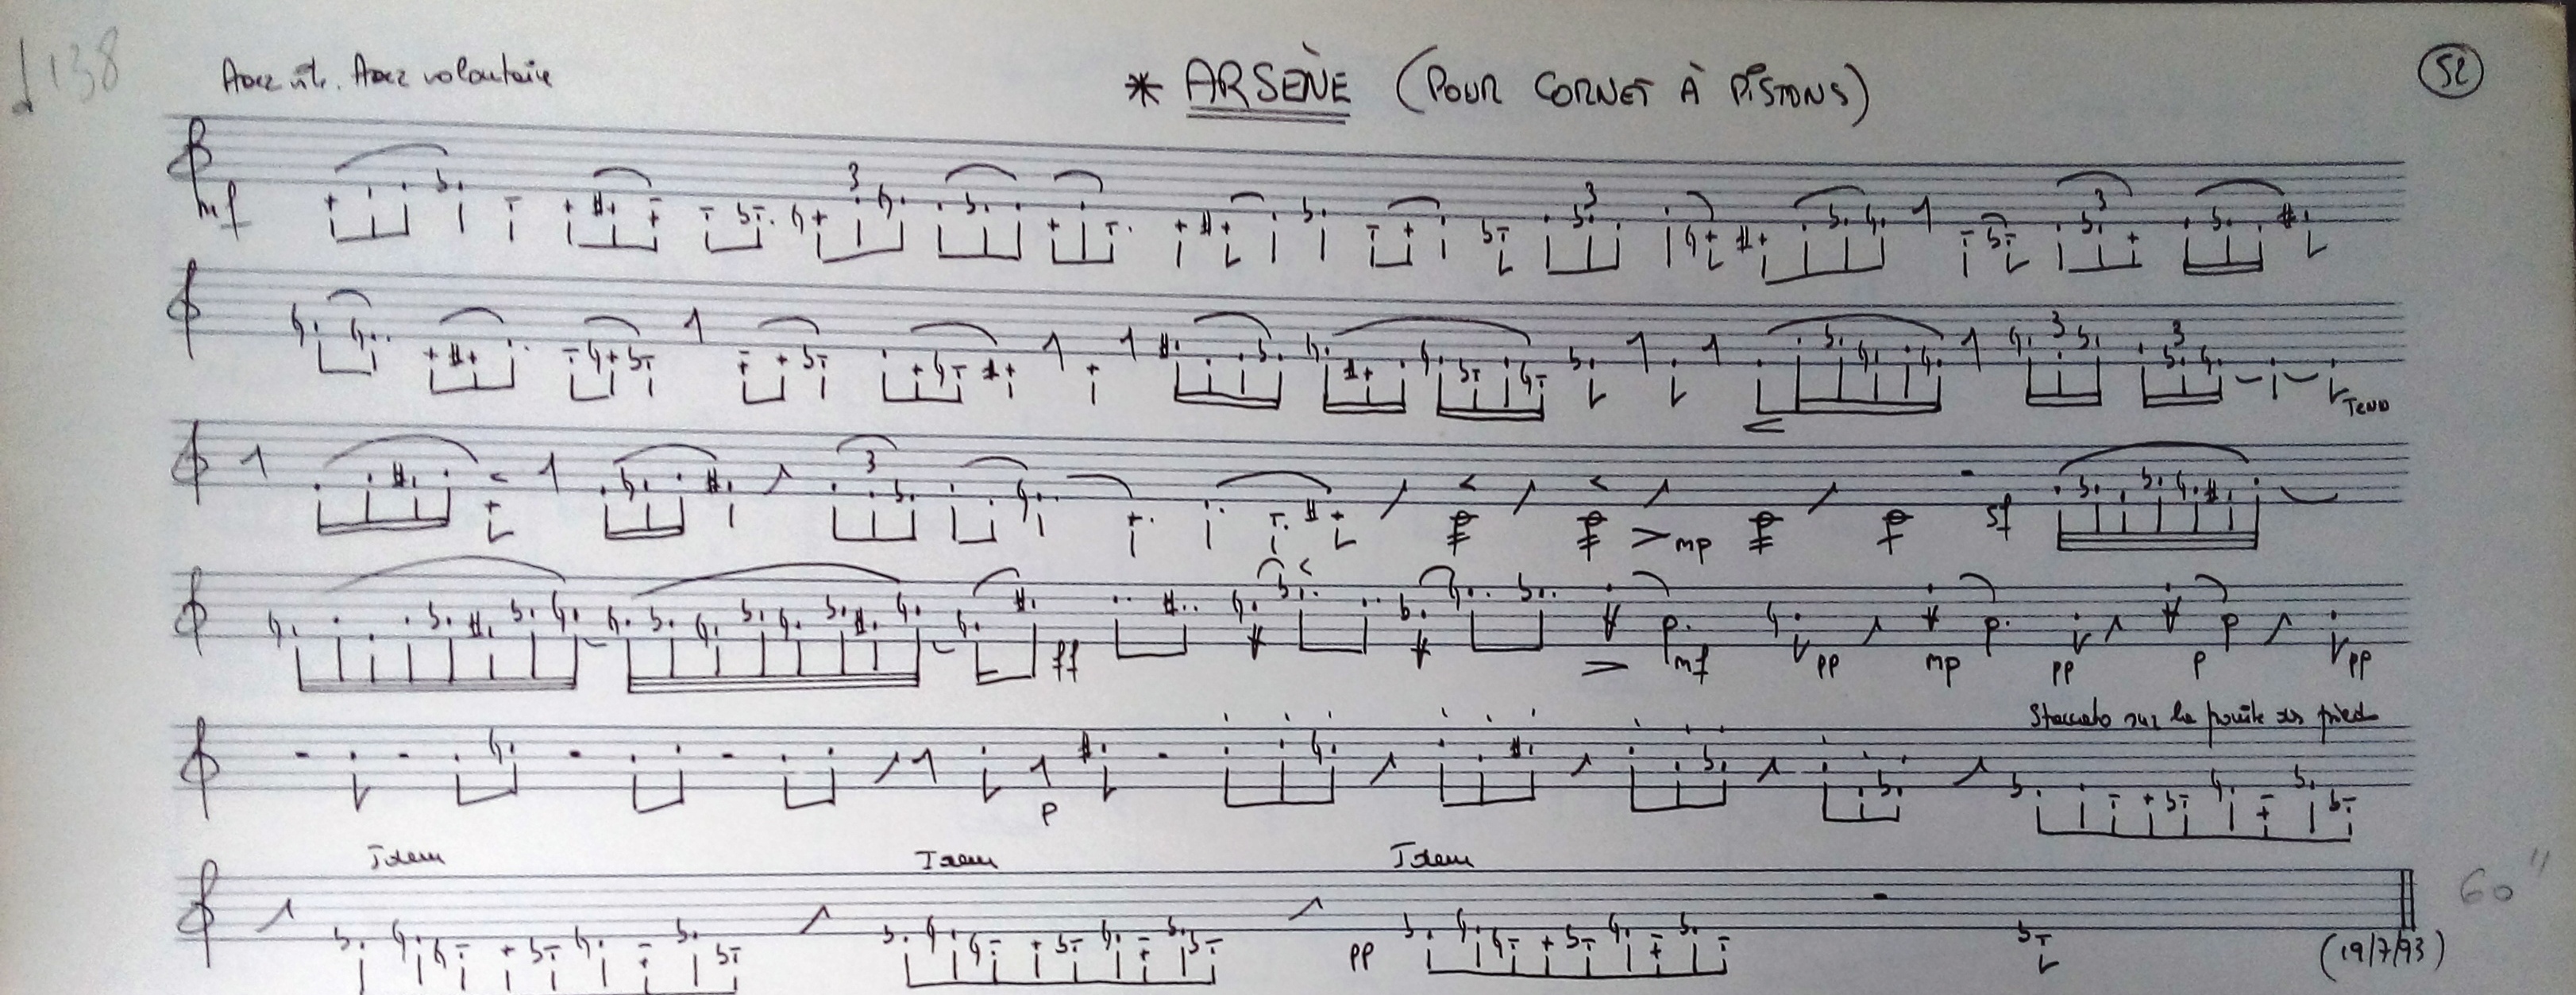 ♩138
Assez vite. Assez volontaire
* ARSENÈ (POUR CORNET À PISTONS)
52
mf
3
3
3
3
3
Tenu
3
mp
sf
ff
mf
pp
mp
pp
p
pp
Staccato sur la pointe des pieds
p
Idem
Idem
Idem
60"
pp
(19/7/93)